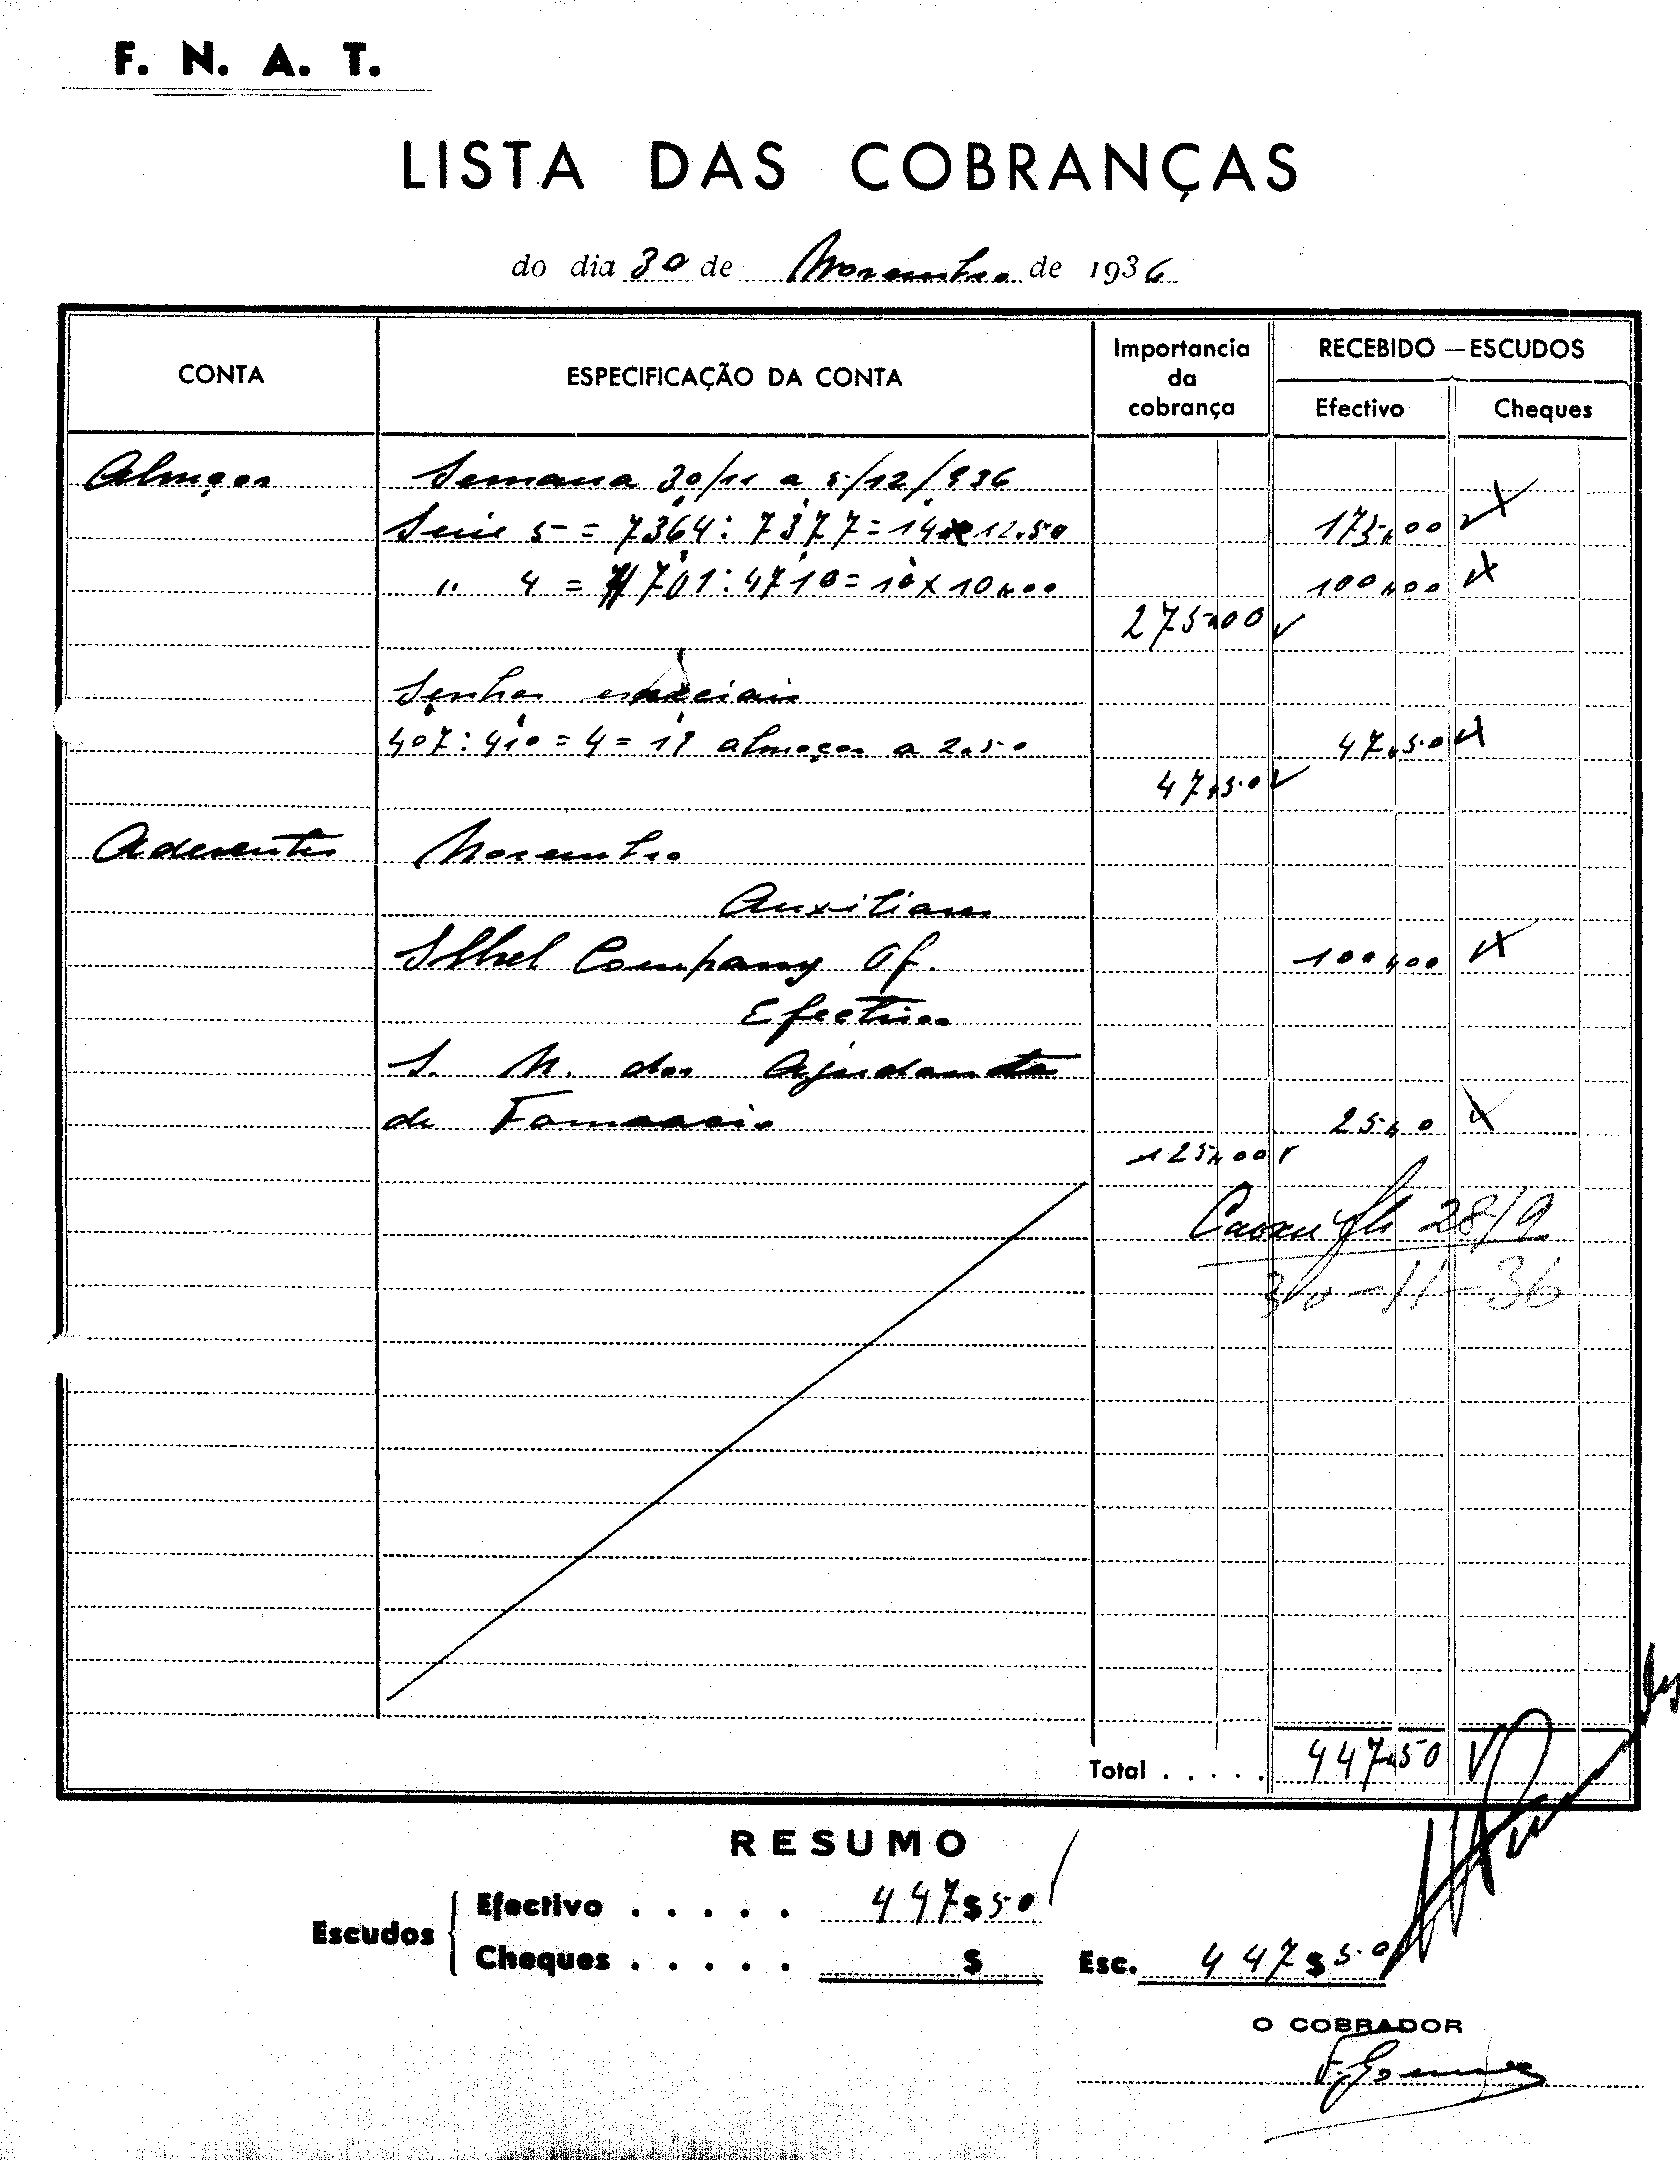 F. N. A. T.
LISTA DAS COBRANÇAS
do dia 30 de Novembro de 1936
CONTA
ESPECIFICAÇÃO DA CONTA
Importancia da cobrança
RECEBIDO — ESCUDOS
Efectivo
Cheques
Almoços Semana 30/11 a 5/12/936
Serie 5 = 7364: 7377 = 14 x 12.50 175,00
" 4 = 701: 4710 = 10 x 10,00 100,00
275,00
Senhas especiais
407: 410 = 4 = 19 almoços a 2.50 47,50
47,50
Aderentes Novembro
Auxiliares
Company Of. 100,00
Efectivos
S. N. dos Ajudantes
de Farmacia 25,0
125,00
28/9
30-11-36
Total . . . . . 447,50
RESUMO
Escudos
Efectivo . . . . . 447$50
Cheques . . . . . $
Esc. 447$50
O COBRADOR
F. Gomes